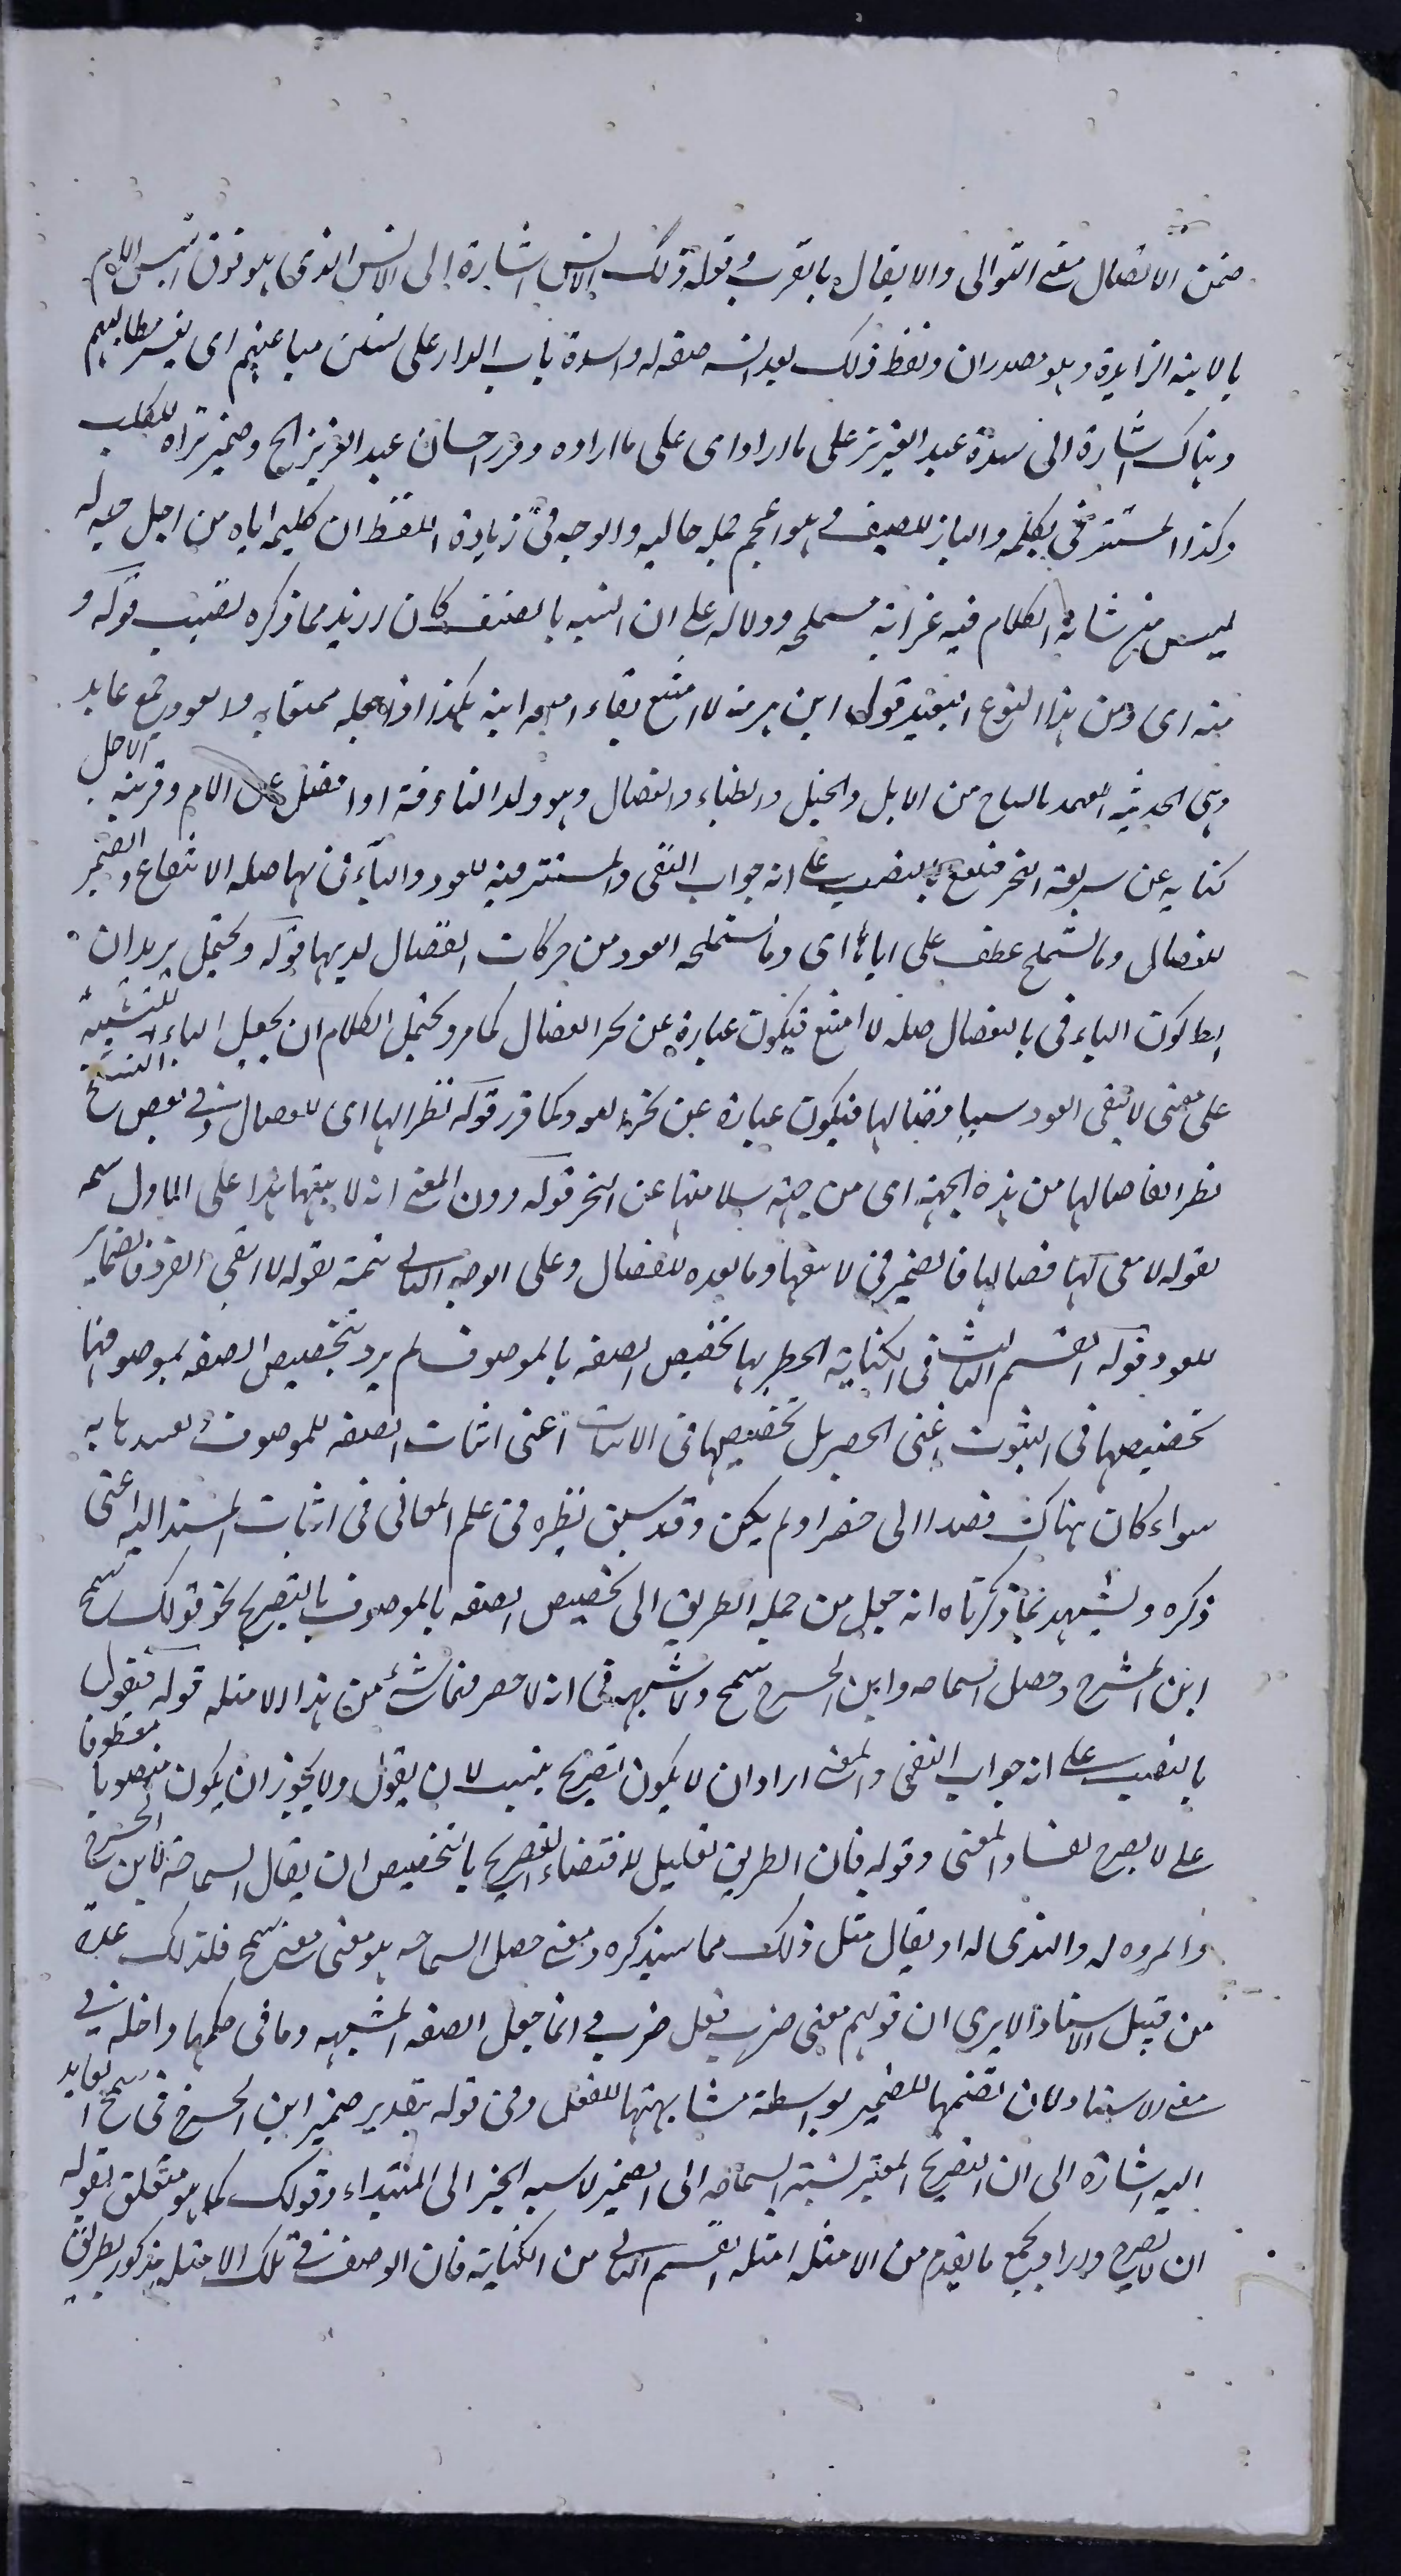 ضمن الاتصال معنى التوالى والايصال بالقرب وقوله ذلك الانس اشارة الى الانس الذى هو فوق انس الام
بالابنة الزايرة وهو مصدران ولفظ ذلك بعد انسه صفة له والسدة باب الدار على سنن مباغيهم اى يفسر مطالبهم
وهناك اشارة الى سدة عبد العزيز على ما اراد اى على ما اراده وفرر احسان عبد العزيز الخ وضمير تراه للكلب
وكذا المستتر فى يكلمه والبارز للضيف وهو اعجم جملة حالية والوجه فى زيادة اللفظ ان كليمه اياه من اجل حبه له
ليس من شانه الكلام فيه غرابة مستملحة ودلالة على ان التنبيه بالمصنف كان ازيد مما ذكره نصيب قوله و
منه اى ومن هذا النوع البعيد قول ابن هرمة لا امتع بقاء المهجة ابنه هكذا اذا جعله ممتعا به والعود جمع عايد
وهى الحديثة العهد بالنتاج من الابل والخيل والظباء والفصال وهو ولد الناقة اذا فصل عن الام وقريبة الاجل
كناية عن سريعة النحر فتمتع بالنصب على انه جواب النفى والمستتر فيه للعود والباء فى بها صلة الانتفاع والضمير
للفصال وما تستملح عطف على اياها اى وما تستملحه العود من حركات الفصال لديها قوله ويحتمل يريد ان
ابطا كون الباء فى بالفصال صلة لا امتع فيكون عبارة عن نحر الفصال كما مر ويحتمل الكلام ان يجعل الباء للتسبيب
على معنى لا تبقى العود سبب فصالها فيكون عبارة عن نحر العود كما قرر قوله نظر الها اى للفصال وفى بعض النسخ
نظرا لفصالها من هذه الجهة اى من جهة سلامتها عن النحر قوله دون المعنى انه لا يبقيها هذا على الاول
بقوله لا معى لها فصالها فالضمير فى لا يبقيها وما بعده للفصال وعلى الوجه الثانى تتمة لقوله لا ابقى العود فالضماير
للعود قوله القسم الثانى فى الكناية المطلوب بها تخصيص الصفة بالموصوف لم يرد بتخصيص الصفة بموصوفها
تخصيصها فى الثبوت اعنى الحصر بل تخصيصها فى الاثبات اعنى اثبات الصفة للموصوف
سواء كان هناك قصدا الى حصر او لم يكن وقد سبق نظيره فى علم المعانى فى اثبات المسند اليه اعنى
ذكره ويشهد لما ذكرناه انه جعل من جملة الطريق الى تخصيص الصفة بالموصوف بالتصريح نحو قولك سمح
ابن الحشرج وحصل السماحة وابن الحشرج سمح ولا شبهة فى انه لا حصر فى شىء من هذا الامثلة قوله فتقول
بالنصب على انه جواب النفى والمعنى اراد ان لا يكون تصريح بسبب لان يقول ولا يجوز ان يكون منصوبا معطوفا
على لا يصرح لفساد المعنى وقوله فان الطريق تعليل لاقتضاء التصريح بالتخصيص ان يقال السماحة لابن الحشرج
والمروه له والندى له او يقال مثل ذلك مما سيذكره ومعنى حصل السماحة هو معنى معنى سمح فلذلك عده
من قبيل الاسناد الا يرى ان قولهم معنى ضرب فعل ضرب وانما جعل الصفة المشبهة وما فى حكمها داخلة فى
معنى الاسناد لان تضمنها للضمير بواسطة مشابهتها للفعل وفى قوله بتقدير ضمير ابن الحشرج فى سمح العايد
اليه اشارة الى ان التصريح المعتبر نسبة السماحة الى الضمير لا نسبة الخبر الى المبتداء وقولك كما هو متعلق بقوله
ان لا يصرح واراد بجميع ما يقدم من الامثلة امثلة القسم الثانى من الكناية فان الوصف فى تلك الامثلة مذكور بطريق